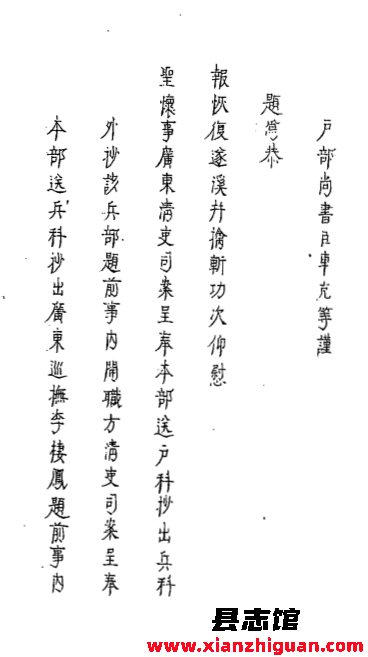 户部尚書臣車克等謹
題爲恭
報恢復遂溪并擒斬功次仰慰
聖懷事廣東清吏司案呈奉本部送户科抄出兵科
外抄該兵部題前事内開職方清吏司案呈奉
本部送兵科抄出廣東巡撫李棲鳳題前事内
县志馆
www.xianzhiguan.com